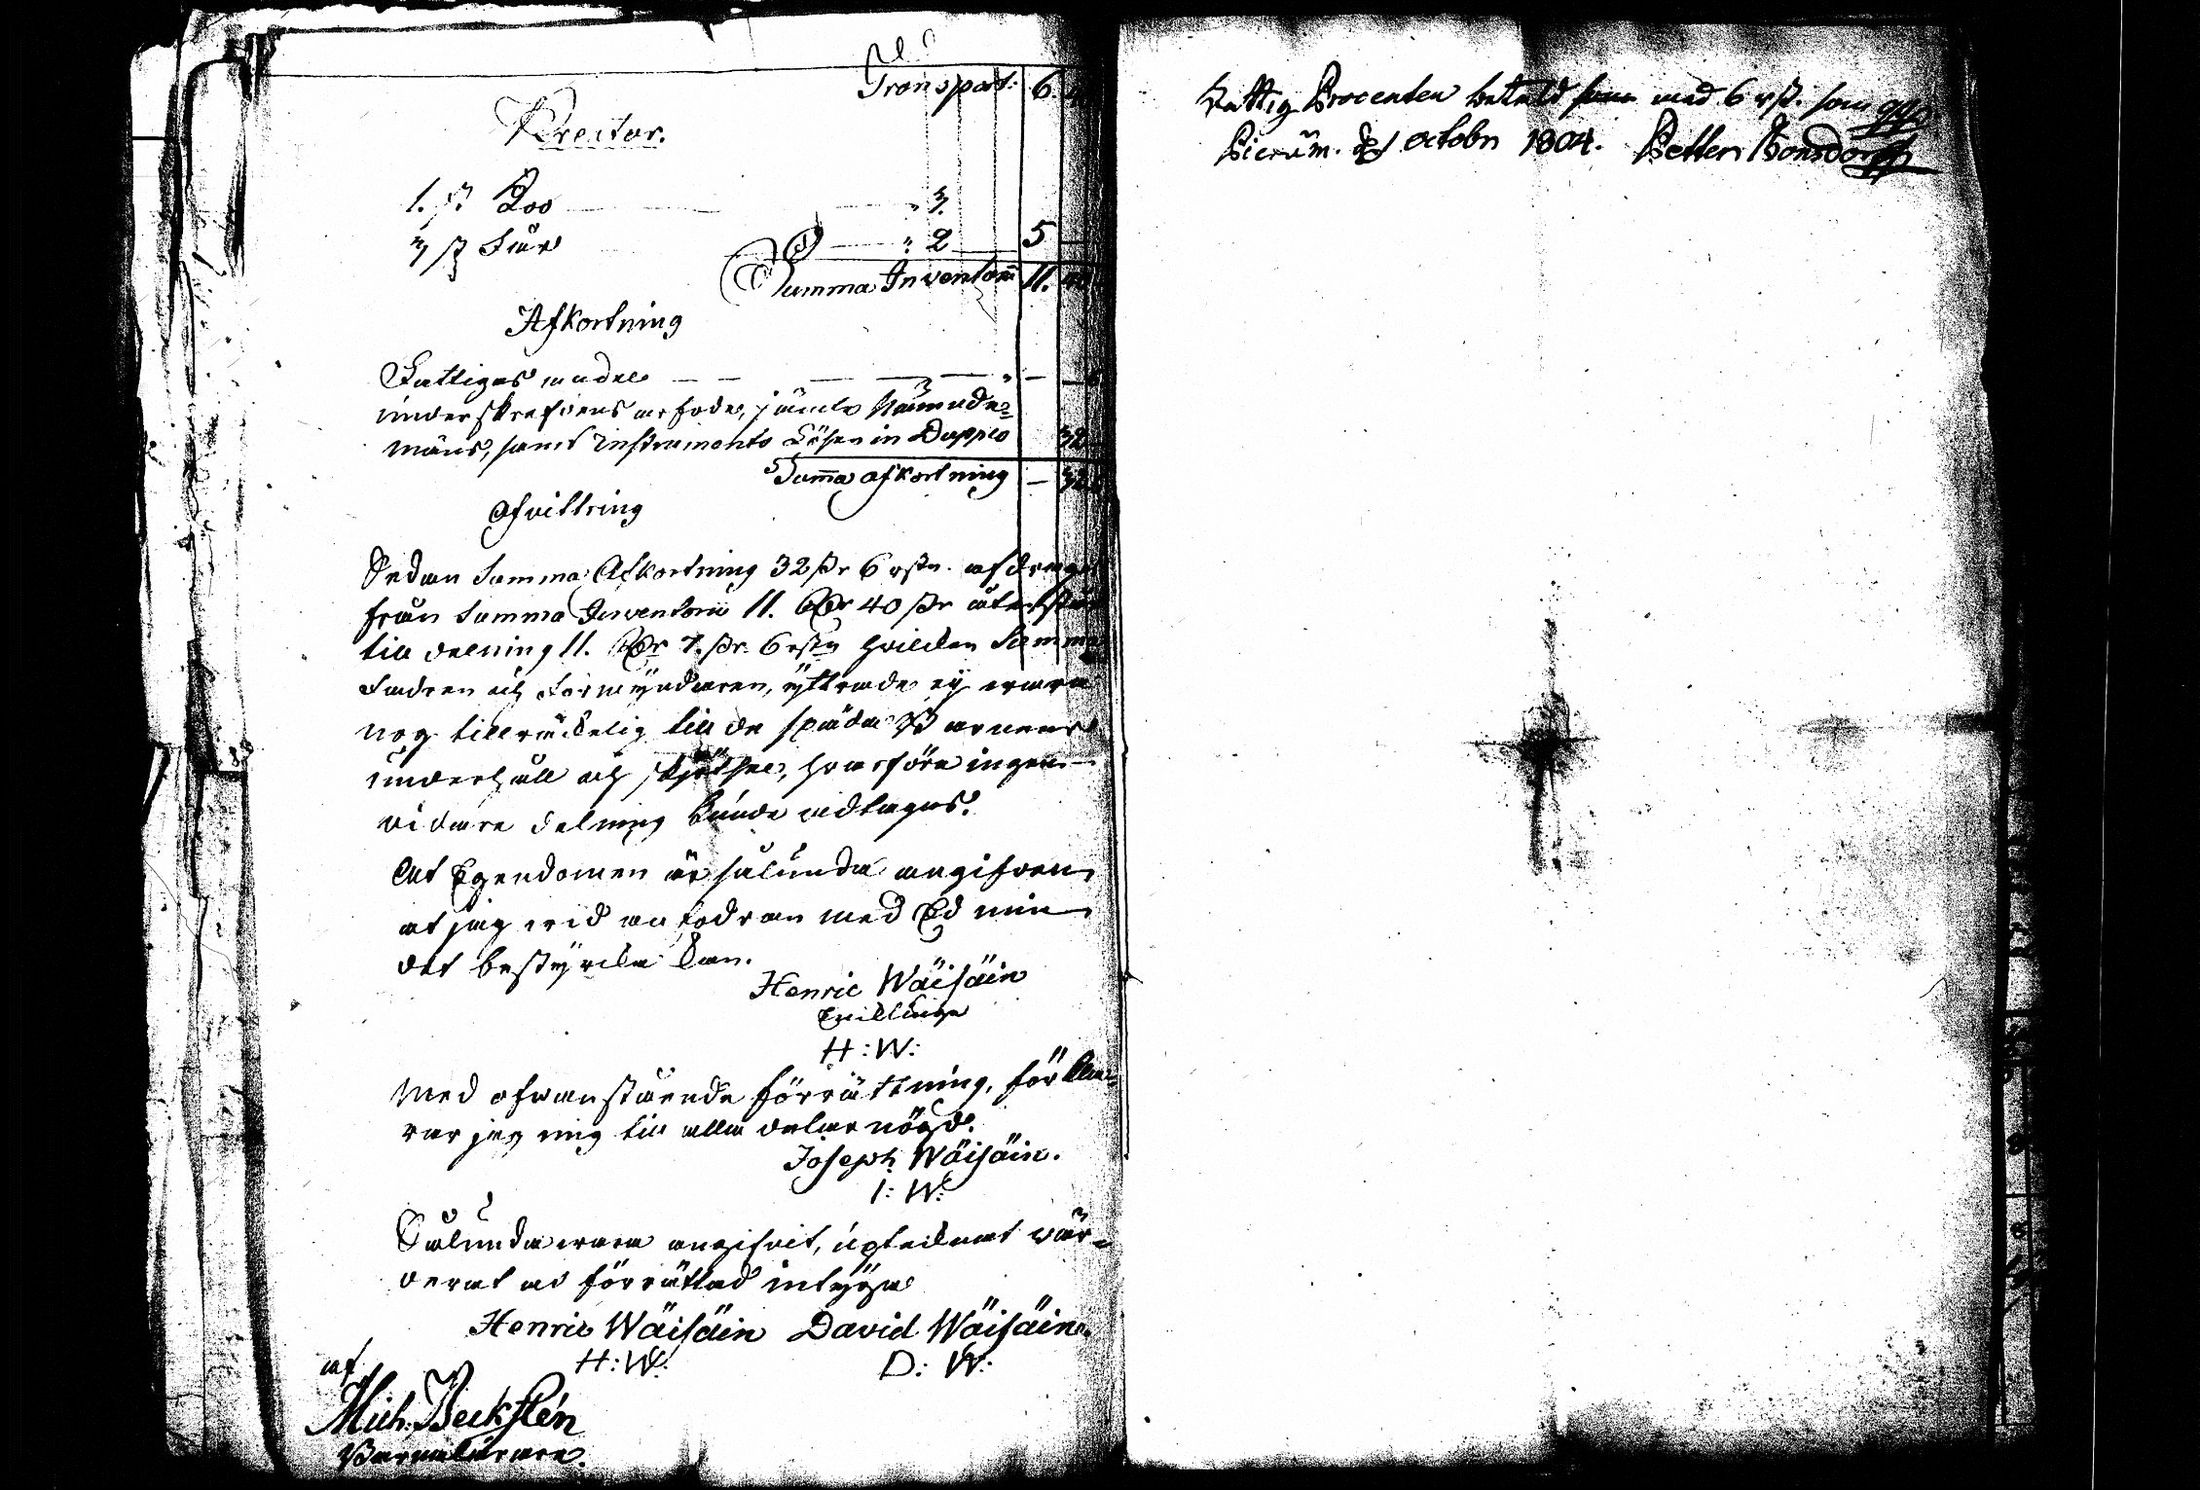 Transport: 6. 4
Kreitur.
1. st Koo " 3.
3 st Får " 2 5 –
Summa Inventarii 11. 40
Afkortning
Fattigas andel " – 6
underskrefvens arfvode, jämte Nämnde=
mäns, samt instruments Lösen in Duplo 32
Suma afkortning – 32.
Afvittring
Sedan Summa Afkortning 32 sk 6 rst. afdrages
från Summa Inventarii 11. Rdr 40 sk återstår
till delning 11. Rdr 7. sk 6 rst hvilken Summa
Fadren och Förmyndaren, yttrade ey vara
nog tillräckelig till de späda Barnens
underhåll och skjötsel, hvarföre ingen
vidare delning kunde vidtagas.
At Egendomen är sålunda angifven,
at jag vid anfodran med Ed min
det bestyrcka kan.
Henric Wäisäin
Enckling
H: W:
Med ofvanstående förrättning, förkla=
rar jag mig till alla delar nögd.
Joseph Wäisäin.
I: W:
Sålunda vara angifvit, upteknat vär=
derat och förrättad intyga
Henric Wäisäin David Wäisäin.
H: W: D: W:
af
Mich. Beckslén
Barnalärare.
Fattig Procenten betald med 6 rst. som qvitteras
October 1804. Petter Bonsdorff